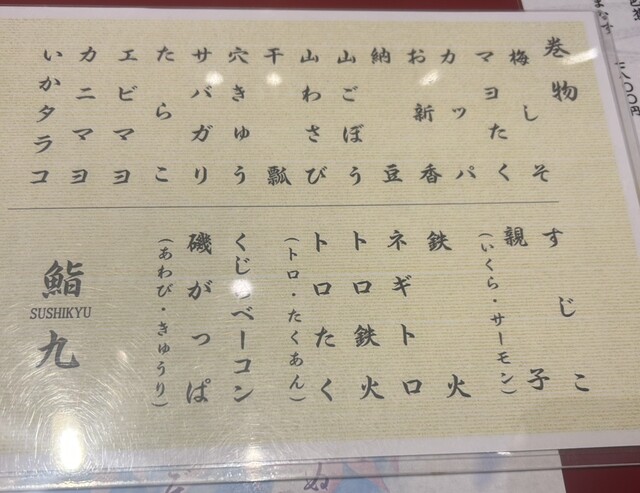 巻物
梅しそ
マヨたく
カッパ
お新香
納豆
山ごぼう
山わさび
干瓢
穴きゅう
サバガリ
たらこ
エビマヨ
カニマヨ
いかタラコ
すじこ
親子
(いくら・サーモン)
鉄火
ネギトロ
トロ鉄火
トロたく
(トロ・たくあん)
くじらベーコン
磯がっぱ
(あわび・きゅうり)
鮨九
SUSHIKYU